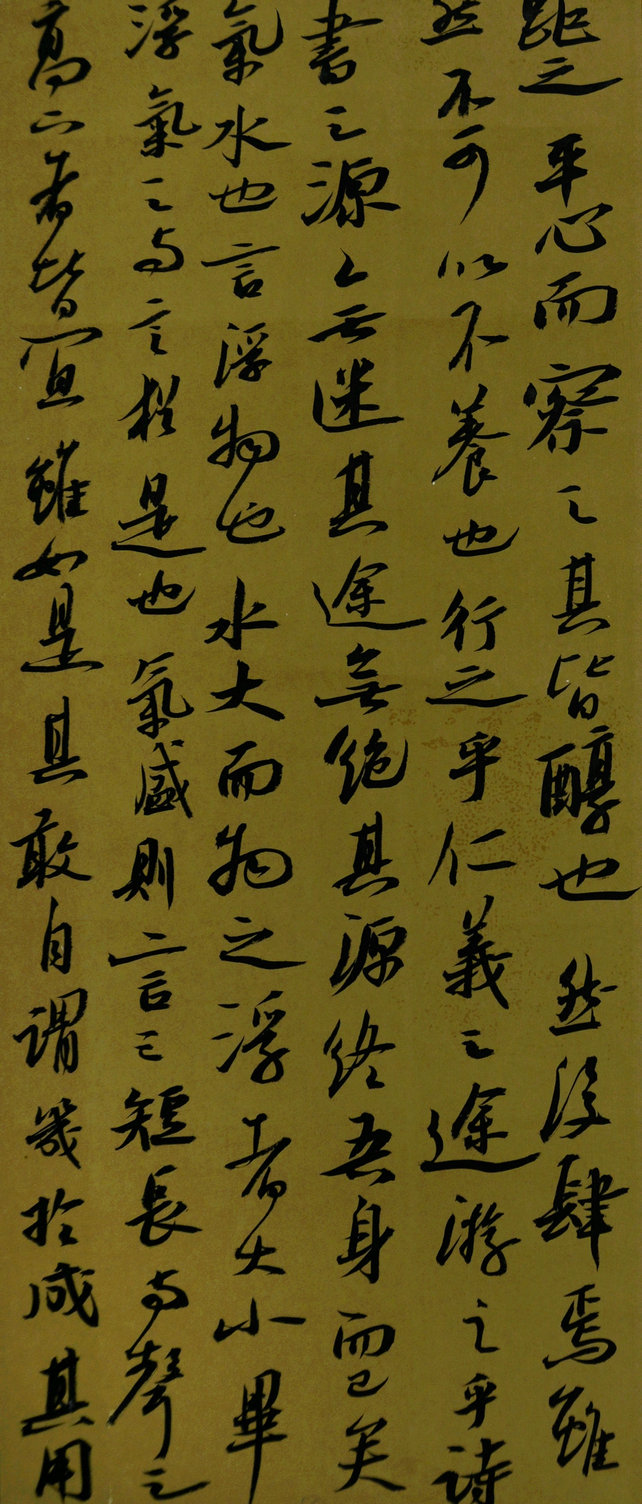 距之平心而察之其皆醇也然後肆焉雖
然不可以不養也行之乎仁義之途游之乎詩
書之源々無迷其途無絶其源終吾身而已矣
氣水也言浮物也水大而物之浮者大小畢
浮氣之與言猶是也氣盛則言之短長與聲之
高下者皆宜雖如是其敢自謂幾於成其用